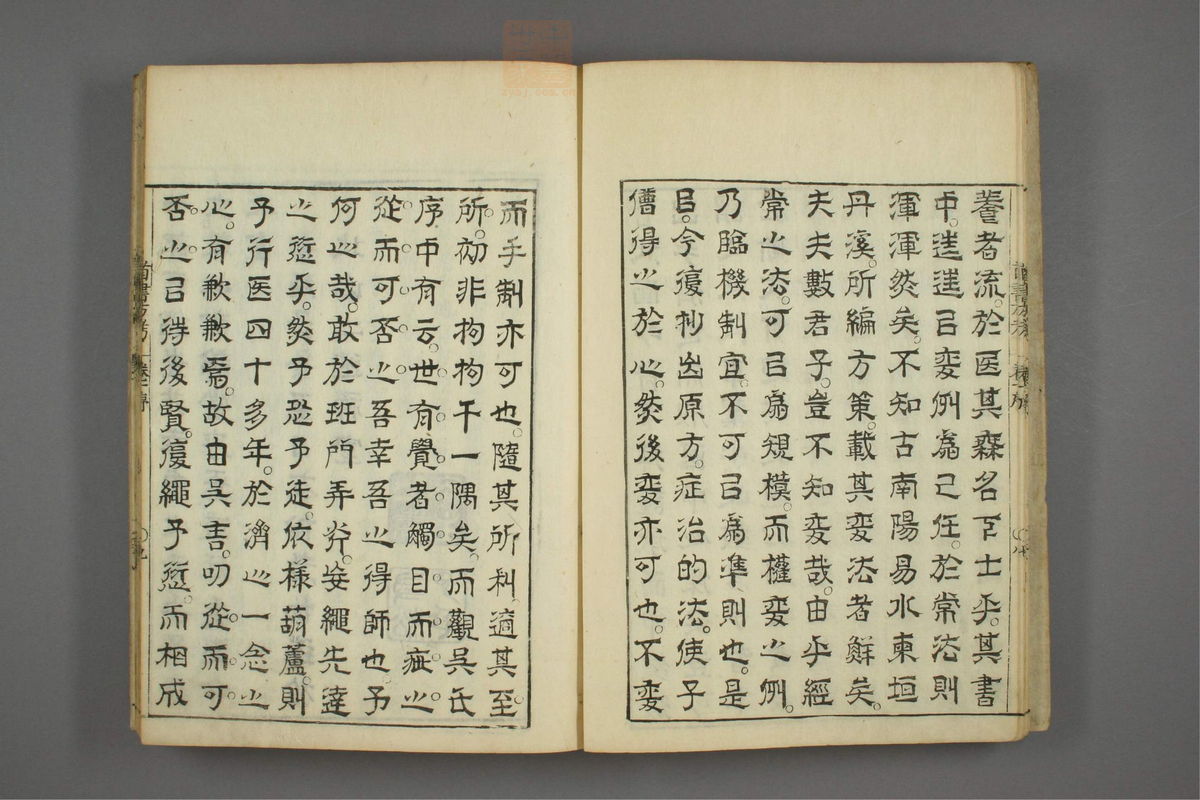 養者流。於医其森名下士乎。其書
中。進進㠯変例為己任。於常法則
渾渾然矣。不知古南陽易水東垣
丹溪。所編方策。載其変法者鮮矣。
夫夫數君子。豈不知変哉。由乎經
常之法。可㠯為規模。而權変之例。
乃臨機制宜。不可㠯為準則也。是
㠯。今復抄出原方。症治的法。使予
儕得之於心。然後変亦可也。不変
而手制亦可也。隨其所利。適其至
所。初非拘拘干一隅矣。而觀吳氏
序中有云。世有覺者。觸目而疵之
從而可否之吾幸吾之得師也予
何之哉。敢於班門弄斧。妄繩先達
之愆乎。然予恐予徒。依様葫蘆。則
予行医四十多年。於濟之一念之
心。有歉歉焉。故由吳言。叨從而可
否之㠯待後賢。復繩予愆。而相成